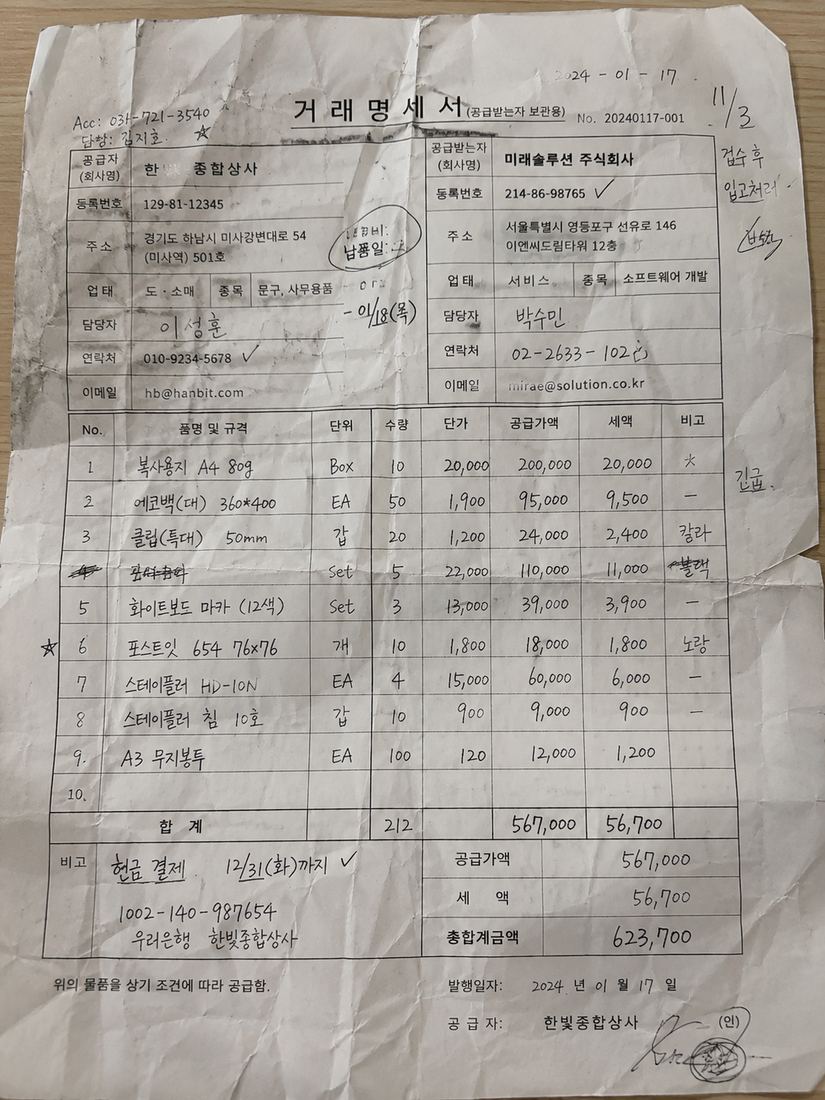 2024 - 01 - 17
Acc: 031-721-3540
담항: 김지호 ☆
거래명세서 (공급받는자 보관용) No. 20240117-001
11/3
접수 후
입고처리
공급자 (회사명) 한빛 종합상사
등록번호 129-81-12345
주소 경기도 하남시 미사강변대로 54
(미사역) 501호
업태 도·소매 종목 문구, 사무용품
담당자 이성훈
연락처 010-9234-5678 ✓
이메일 hb@hanbit.com
납품일:
01/18(목)
공급받는자 (회사명) 미래솔루션 주식회사
등록번호 214-86-98765 ✓
주소 서울특별시 영등포구 선유로 146
이엔씨드림타워 12층
업태 서비스 종목 소프트웨어 개발
담당자 박수민
연락처 02-2633-102
이메일 mirae@solution.co.kr
No. 품명 및 규격 단위 수량 단가 공급가액 세액 비고
1 복사용지 A4 80g Box 10 20,000 200,000 20,000 *
긴급.
2 에코백(대) 360*400 EA 50 1,900 95,000 9,500 -
3 클립(특대) 50mm 갑 20 1,200 24,000 2,400 칼라
Set 5 22,000 110,000 11,000 블랙
5 화이트보드 마카 (12색) Set 3 13,000 39,000 3,900 -
☆ 6 포스트잇 654 76x76 개 10 1,800 18,000 1,800 노랑
7 스테이플러 HD-10N EA 4 15,000 60,000 6,000 -
8 스테이플러 침 10호 갑 10 900 9,000 900 -
9. A3 무지봉투 EA 100 120 12,000 1,200
10.
합 계 212 567,000 56,700
비고 현금 결제 12/31(화)까지 ✓
1002-140-987654
우리은행 한빛종합상사
공급가액 567,000
세 액 56,700
총합계금액 623,700
위의 물품을 상기 조건에 따라 공급함.
발행일자: 2024 년 01 월 17 일
공 급 자: 한빛종합상사 (인)